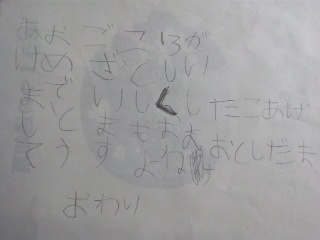 あけまして
おめでとう
ございます
ことしもよ
ろしくおね
がいし
たこあげ
おとしだま
おわり